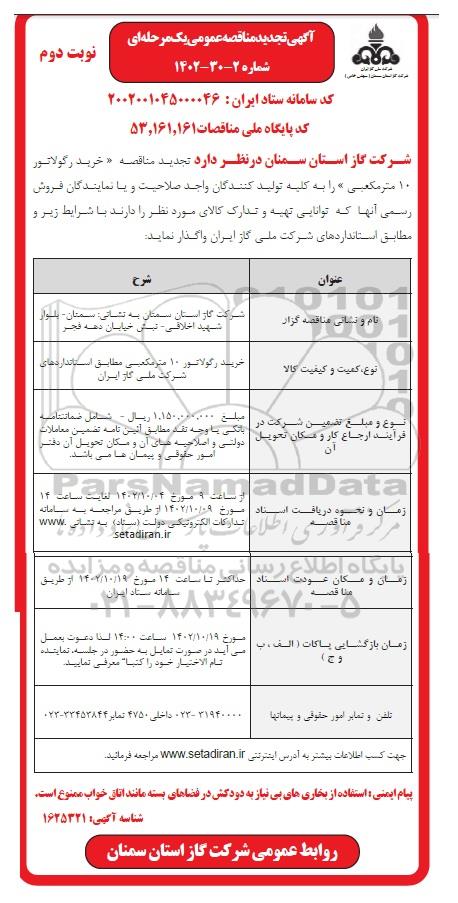 آگهی تجدید مناقصه عمومی یک مرحله‌ای
شماره ۲-۳۰-۱۴۰۲
نوبت دوم
شرکت ملی گاز ایران
شرکت گاز استان سمنان (سهامی خاص)
کد سامانه ستاد ایران : ۲۰۰۲۰۰۱۰۴۵۰۰۰۰۴۶
کد پایگاه ملی مناقصات ۵۳,۱۶۱,۱۶۱
شرکت گاز استان سمنان در نظر دارد تجدید مناقصه « خرید رگولاتور
۱۰ مترمکعبی » را به کلیه تولید کنندگان واجد صلاحیت و یا نمایندگان فروش
رسمی آنها که توانایی تهیه و تدارک کالای مورد نظر را دارند با شرایط زیر و
مطابق استانداردهای شرکت ملی گاز ایران واگذار نماید:
عنوان
شرح
نام و نشانی مناقصه گزار
شرکت گاز استان سمنان به نشانی: سمنان- بلوار
شهید اخلاقی- نبش خیابان دهه فجر
نوع،کمیت و کیفیت کالا
خرید رگولاتور ۱۰ مترمکعبی مطابق استانداردهای
شرکت ملی گاز ایران
نوع و مبلغ تضمین شرکت در
فرآیند ارجاع کار و مکان تحویل
آن
مبلغ ۱.۱۵۰.۰۰۰.۰۰۰ ریال - شامل ضمانتنامه
بانکی یا وجه نقد مطابق آئین نامه تضمین معاملات
دولتی و اصلاحیه های آن و مکان تحویل آن دفتر
امور حقوقی و پیمان ها می باشد.
زمان و نحوه دریافت اسناد
مناقصه
از ساعت ۹ مورخ ۱۴۰۲/۱۰/۰۴ لغایت ساعت ۱۴
مورخ ۱۴۰۲/۱۰/۰۹ از طریق مراجعه به سامانه
تدارکات الکترونیکی دولت (ستاد) به نشانی www.
setadiran.ir
زمان و مکان عودت اسناد
مناقصه
حداکثر تا ساعت ۱۴ مورخ ۱۴۰۲/۱۰/۱۹ از طریق
سامانه ستاد ایران
زمان بازگشایی پاکات ( الف ، ب
و ج )
مورخ ۱۴۰۲/۱۰/۱۹ ساعت ۱۴:۰۰ لذا دعوت بعمل
می آید در صورت تمایل به حضور در جلسه، نماینده
تام الاختیار خود را کتبا" معرفی نمایید.
تلفن و نمابر امور حقوقی و پیمانها
۳۱۹۴۰۰۰۰ -۰۲۳ داخلی ۴۷۵۰ نمابر ۳۳۴۵۳۸۴۴-۰۲۳
جهت کسب اطلاعات بیشتر به آدرس اینترنتی www.setadiran.ir مراجعه فرمائید.
پیام ایمنی : استفاده از بخاری های بی نیاز به دودکش در فضاهای بسته مانند اتاق خواب ممنوع است.
شناسه آگهی: ۱۶۲۵۳۲۱
روابط عمومی شرکت گاز استان سمنان
ParsNamadData
پایگاه اطلاع رسانی مناقصه و مزایده
۰۲۱-۸۸۳۴۹۶۷۰-۵